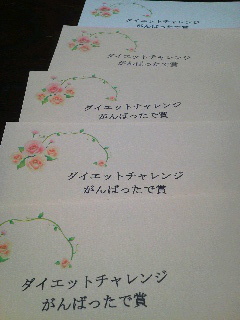 ダイエットチャレンジ
がんばったで賞
ダイエットチャレンジ
がんばったで賞
ダイエットチャレンジ
がんばったで賞
ダイエットチャレンジ
がんばったで賞
ダイエットチャレンジ
がんばったで賞